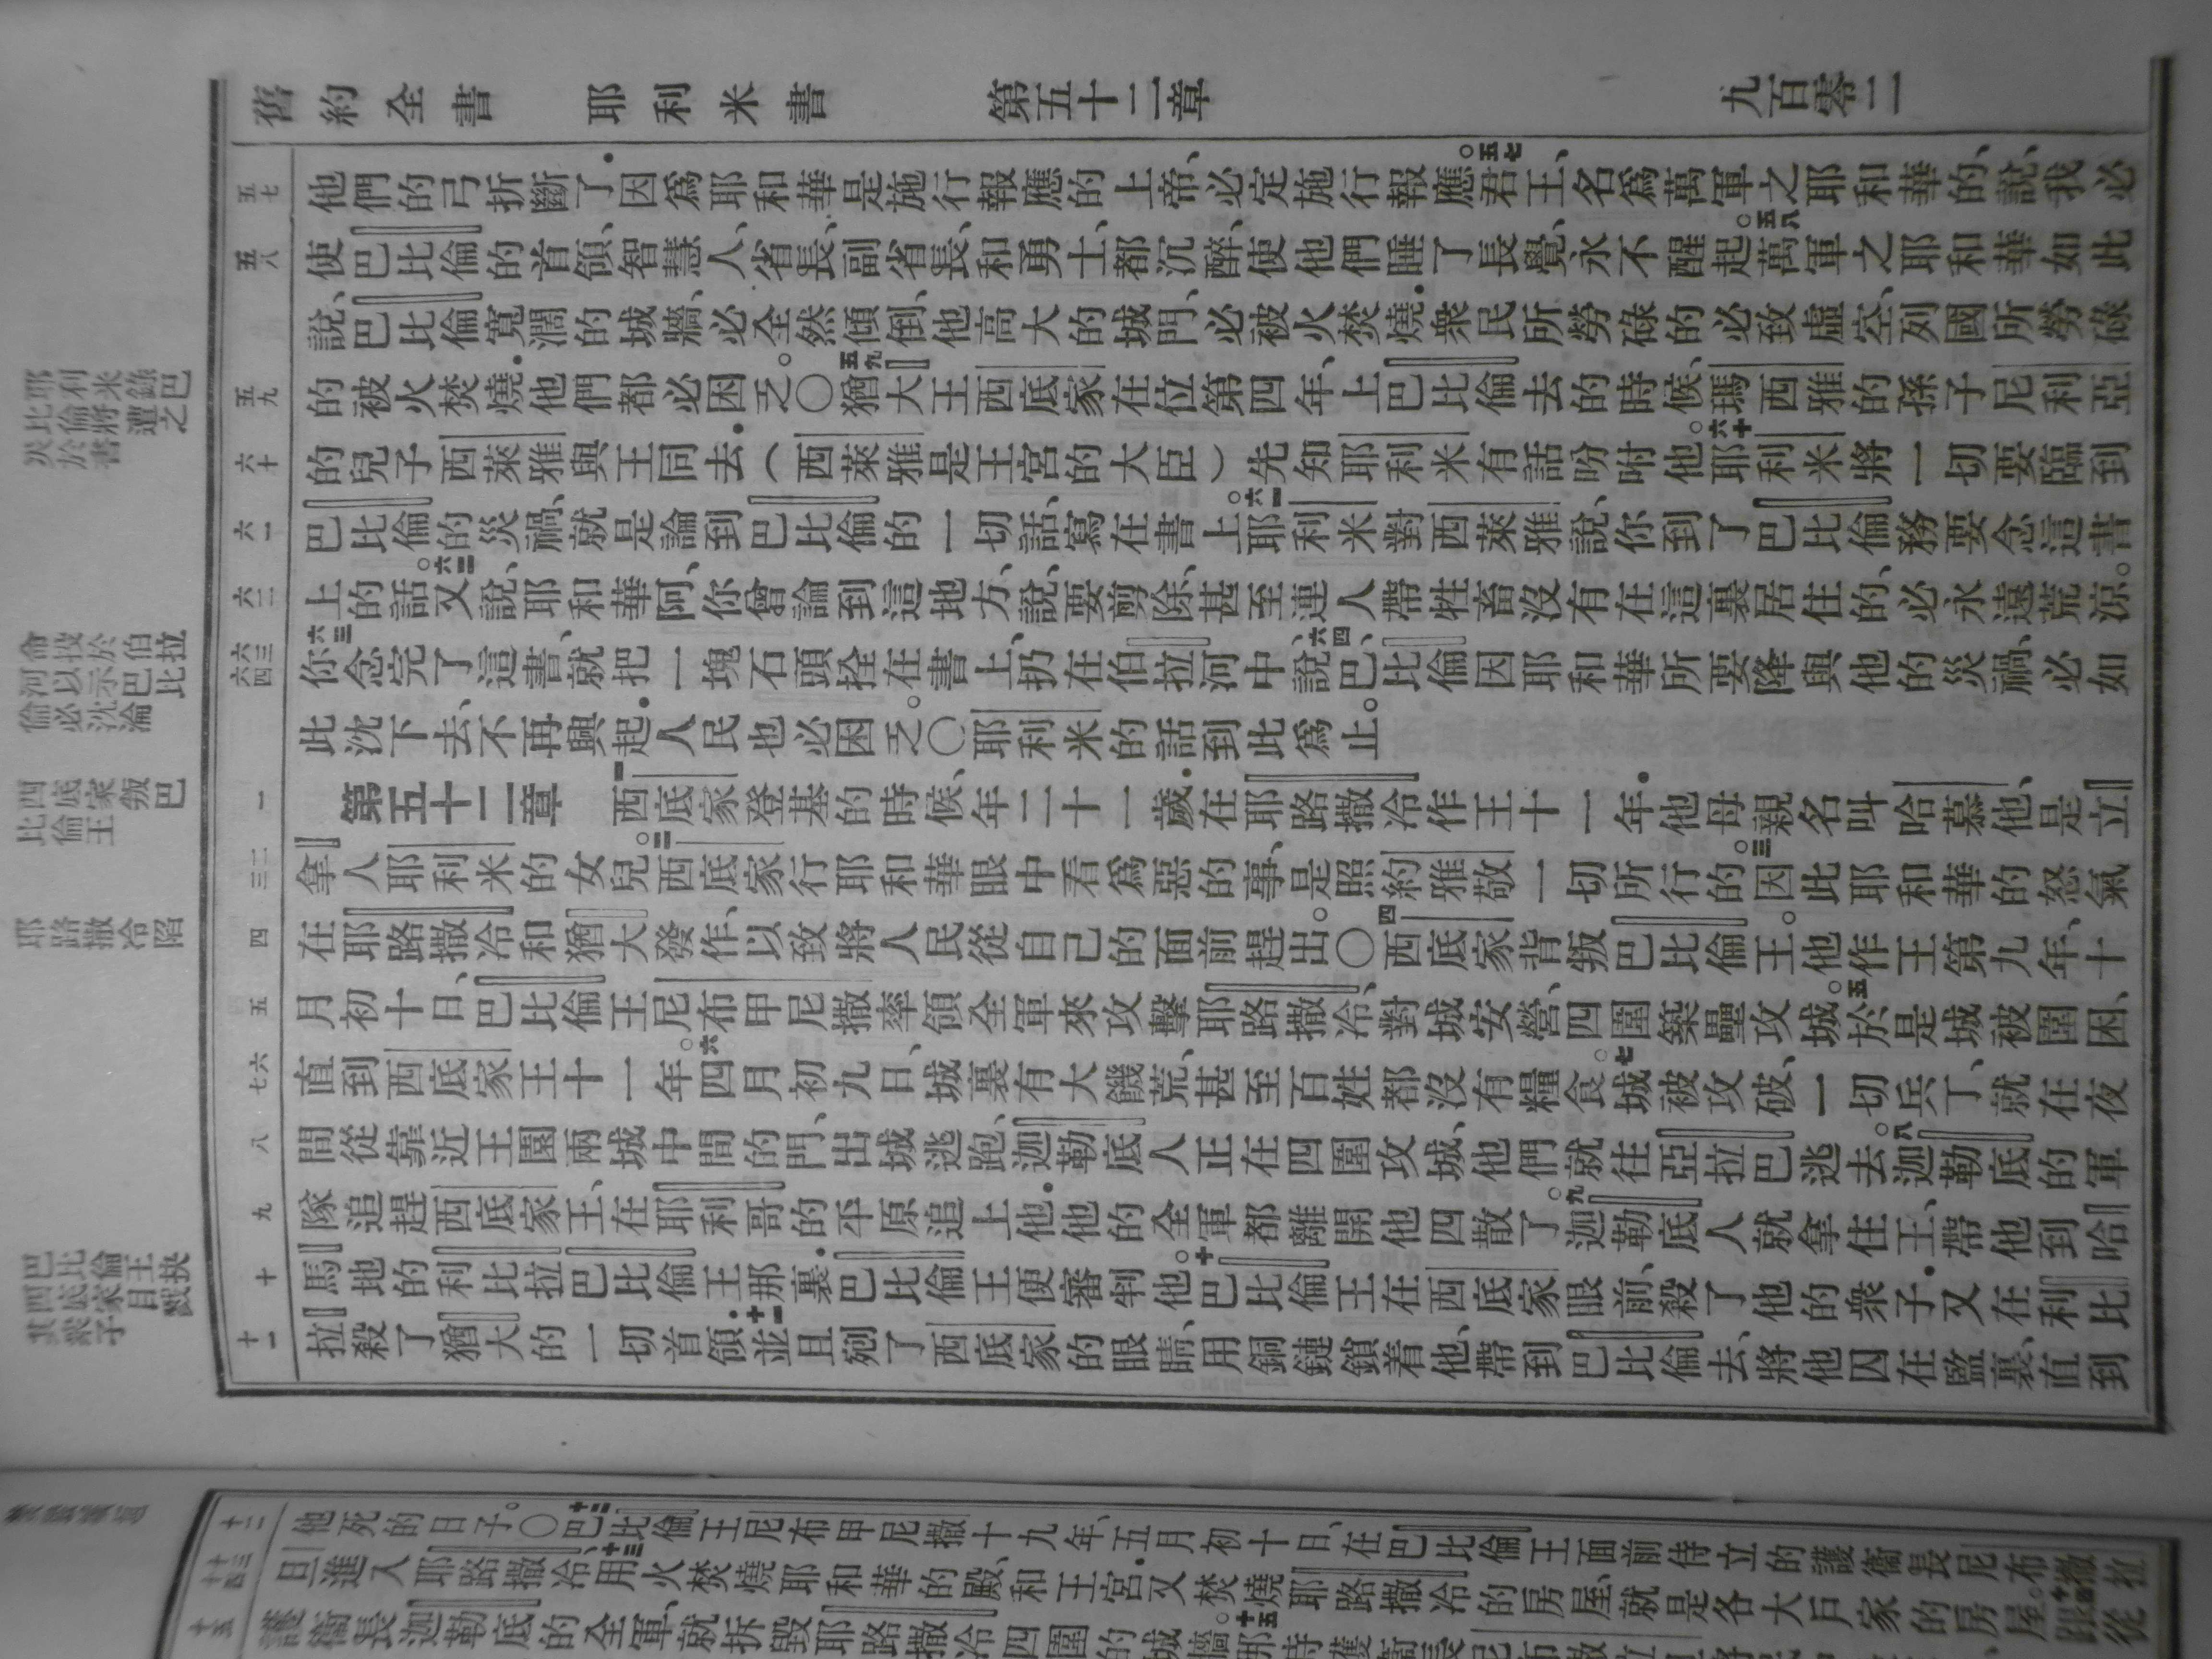 舊約全書 耶利米書 第五十二章 九百零二
五七 他們的弓折斷了．因爲耶和華是施行報應的上帝、必定施行報應。五七君王、名爲萬軍之耶和華的、說、我必
五八 使巴比倫的首領、智慧人、省長、副省長、和勇士、都沉醉、使他們睡了長覺、永不醒起。五八萬軍之耶和華如此
說、巴比倫寬濶的城牆、必全然傾倒、他高大的城門、必被火焚燒．衆民所勞碌的必致虛空、列國所勞碌
五九 的被火焚燒．他們都必困乏。〇五九猶大王西底家在位第四年、上巴比倫去的時候、瑪西雅的孫子尼利亞
六十 的兒子西萊雅與王同去．（西萊雅是王宮的大臣）先知耶利米有話吩咐他。六十耶利米將一切要臨到
六一 巴比倫的災禍、就是論到巴比倫的一切話、寫在書上。六一耶利米對西萊雅說、你到了巴比倫務要念這書
六二 上的話。六二又說、耶和華阿、你曾論到這地方、說、要剪除、甚至連人帶牲畜沒有在這裏居住的、必永遠荒涼。
六三 六四 六三你念完了這書、就把一塊石頭拴在書上、扔在伯拉河中、六四說、巴比倫因耶和華所要降與他的災禍、必如
此沈下去、不再興起．人民也必困乏。〇耶利米的話到此爲止。
一 第五十二章 一西底家登基的時候、年二十一歲．在耶路撒冷作王十一年．他母親名叫哈慕他、是立
二 三 拿人耶利米的女兒。二西底家行耶和華眼中看爲惡的事、是照約雅敬一切所行的。三因此耶和華的怒氣
四 在耶路撒冷和猶大發作、以致將人民從自己的面前趕出。〇四西底家背叛巴比倫王。他作王第九年、十
五 月初十日、巴比倫王尼布甲尼撒率領全軍來攻擊耶路撒冷、對城安營、四圍築壘攻城。五於是城被圍困、
六 七 直到西底家王十一年。六四月初九日、城裏有大饑荒、甚至百姓都沒有糧食。七城被攻破、一切兵丁、就在夜
八 間從靠近王園兩城中間的門、出城逃跑、迦勒底人正在四圍攻城、他們就往亞拉巴逃去。八迦勒底的軍
九 隊追趕西底家王、在耶利哥的平原追上他．他的全軍都離開他四散了。九迦勒底人就拿住王、帶他到哈
十 馬地的利比拉巴比倫王那裏．巴比倫王便審判他。十巴比倫王在西底家眼前、殺了他的衆子．又在利比
十一 拉殺了猶大的一切首領．十一並且剜了西底家的眼睛、用銅鏈鎖着他、帶到巴比倫去、將他囚在監裏、直到
耶利米錄巴
比倫將遭之
災於書
命投於伯拉
河以示巴比
倫必沈淪
西底家叛巴
比倫王
耶路撒冷陷
巴比倫王抉
西底家目戮
其衆子
十二 他死的日子。〇十二巴比倫王尼布甲尼撒十九年、五月初十日、在巴比倫王面前侍立的護衞長尼布撒拉
十三 十四 旦進入耶路撒冷、十三用火焚燒耶和華的殿、和王宮．又焚燒耶路撒冷的房屋、就是各大戶家的房屋。十四跟從
十五 護衞長迦勒底的全軍、就拆毀耶路撒冷四圍的城牆。十五那時護衞長尼布撒拉